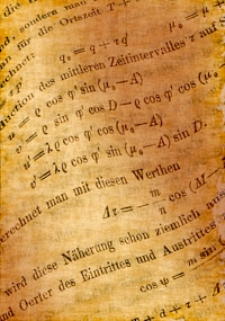 und sondern man
man für die Ortszeit T +
rechnet:
q₀ = q + τd    μ₀ = μ +
uction des mittleren Zeitintervalles τ auf S
u = ϱ cos φ' sin (μ₀ — A)
v = ϱ sin φ' cos D — ϱ cos φ' cos (μ₀
u' = λϱ cos φ' cos (μ₀ — A)
v' = λϱ cos φ' sin (μ₀ — A) sin D.
erechnet man mit diesen Werthen
Δτ = — m/n cos (M —
wird diese Näherung schon ziemlich
und Oerter des Eintrittes und Austrittes
cos ψ = m sin
T + d + τ + Δ